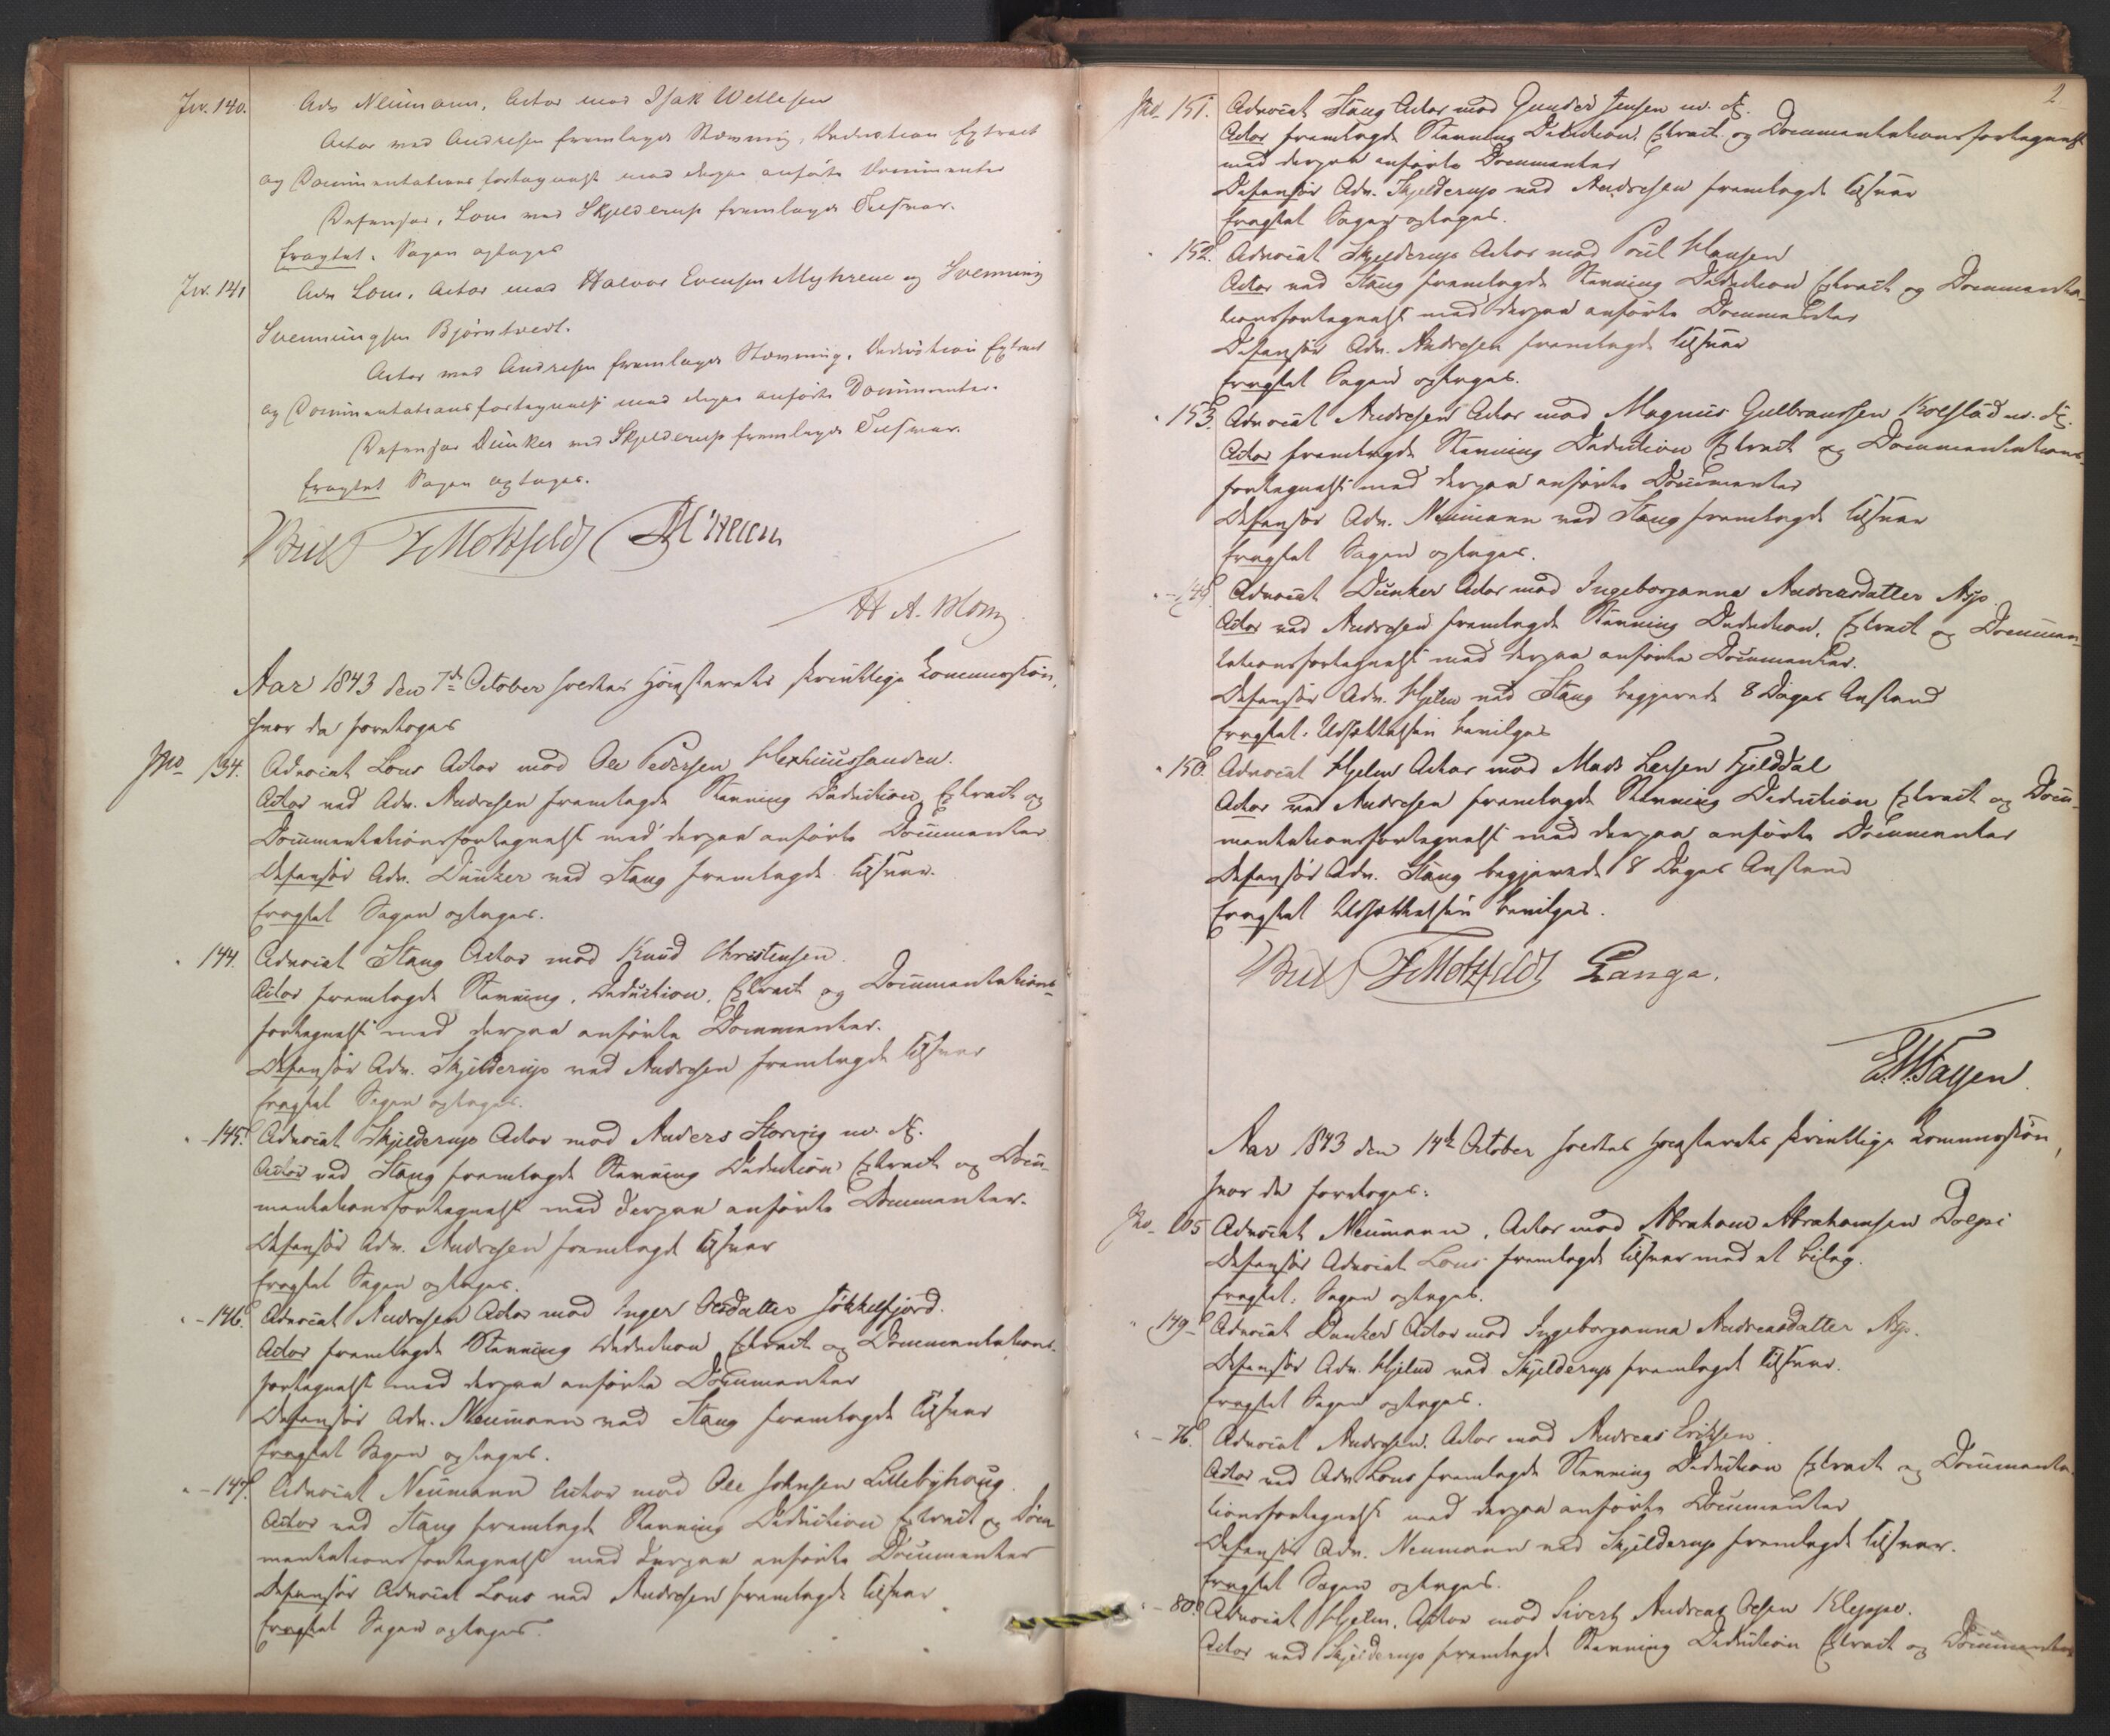 No. 140. Adv Neumann, Actor mod Isak Wettesen
Actor ved Andresen fremlagde Stævning, Deduction Extract
og Documentationsfortegnelse med derpaa anførte Documenter
Defensor, Lous ved Skjelderup fremlagde Tilsvar.
Eragtet. Sagen optages
No. 141 Adv Lous, Actor mod Halvor Evensen Myhrene og Svenning
Svenningsen Bjørntvedt.
Actor ved Andresen fremlagde Stævning, Deduction Extract
og Documentationsfortegnelse med derpaa anførte Documenter.
Defensor Dunker ved Skjelderup fremlagde Tilsvar.
Eragtet Sagen optages.
K Motzfeldt
Aar 1843 den 7de October holdtes Høiesterets skriftlige Commission,
hvor da foretoges
No 134. Advocat Lous Actor mod Ole Pedersen
Actor ved Adv. Andresen fremlagde Stævning Deduction Extract og
Documentationsfortegnelse med derpaa anførte Documenter
Defensor Adv. Dunker ved Stang fremlagde Tilsvar.
Eragtet Sagen optages.
" 144. Advocat Stang Actor mod Knud Christensen.
Actor fremlagde Stævning, Deduction, Extract og Documentations-
fortegnelse med derpaa anførte Documenter.
Defensor Adv. Skjelderup ved Andresen fremlagde Tilsvar
Eragtet Sagen optages.
" - 145. Advocat Skjelderup Actor mod Anders Storvig m. fl.
Actor ved Stang fremlagde Stævning Deduction Extract og Docu-
mentationsfortegnelse med derpaa anførte Documenter.
Defensor Adv. Andresen fremlagde Tilsvar
Eragtet Sagen optages.
" - 146. Advocat Andresen Actor mod Inger Olsdatter Jøkkelfjord.
Actor fremlagde Stævning Deduction Extract og Documentations-
fortegnelse med derpaa anførte Documenter
Defensor Adv. Neumann ved Stang fremlagde Tilsvar
Eragtet Sagen optages.
" - 147. Advocat Neumann Actor mod Ole Johnsen Lillebyhoug.
Actor ved Stang fremlagde Stævning Deduction Extract og Docu-
mentationsfortegnelse med derpaa anførte Documenter
Defensor Advocat Lous ved Andresen fremlagde Tilsvar
Eragtet Sagen optages.
2
No 151. Advocat Stang Actor mod Gunder Jensen m. fl.
Actor fremlagde Stævning Deduction Extract og Documentationsfortegnelse
med derpaa anførte Documenter
Defensor Adv. Skjelderup ved Andresen fremlagde Tilsvar
Eragtet Sagen optages.
" 152. Advocat Skjelderup Actor mod Poul Hansen
Actor ved Stang fremlagde Stævning Deduction Extract og Documenta-
tionsfortegnelse med derpaa anførte Documenter
Defensor Adv. Andresen fremlagde Tilsvar
Eragtet Sagen optages.
" 153. Advocat Andresen Actor mod Magnus Gulbranssen Kolstad m. fl.
Actor fremlagde Stævning Deduction Extract og Documentations-
fortegnelse med derpaa anførte Documenter
Defensor Adv. Neumann ved Stang fremlagde Tilsvar
Eragtet Sagen optages.
" - 149. Advocat Dunker Actor mod Ingeborganna Andreasdatter Asp
Actor ved Andresen fremlagde Stævning Deduction, Extract og Documen-
tationsfortegnelse med derpaa anførte Documenter.
Defensor Adv. Hjelm ved Stang begjærede 8 Dages Anstand
Eragtet. Udsættelsen bevilges
" 150. Advocat Hjelm Actor mod Mads Larsen Fjelddal
Actor ved Andresen fremlagde Stævning Deduction Extract og Docu-
mentationsfortegnelse med derpaa anførte Documenter
Defensor Adv. Stang begjærede 8 Dages Anstand
Eragtet Udsættelsen bevilges.
K Motzfeldt Lange.
Aar 1843 den 14de October holdtes Høiesterets skriftlige Commission,
hvor da foretoges:
No. 105 Advocat Neumann, Actor mod Abraham Abrahamsen Dolpi
Defensor Advocat Lous fremlagde Tilsvar med et Bilag.
Eragtet. Sagen optages.
" 149 - Advocat Dunker Actor mod Ingeborganna Andreasdatter Asp.
Defensor Adv. Hjelm ved Skjelderup fremlagde Tilsvar.
Eragtet Sagen optages.
" - 76. Advocat Andresen. Actor mod Andreas Eriksen.
Actor ved Adv Lous fremlagde Stævning Deduction Extract og Documenta-
tionsfortegnelse med derpaa anførte Documenter
Defensor Adv. Neumann ved Skjelderup fremlagde Tilsvar.
Eragtet Sagen optages.
" - 80. Advocat Hjelm. Actor mod Sivert Andreas Olsen Kleppe.
Actor ved Skjelderup fremlagde Stævning Deduction Extract og Documenta-